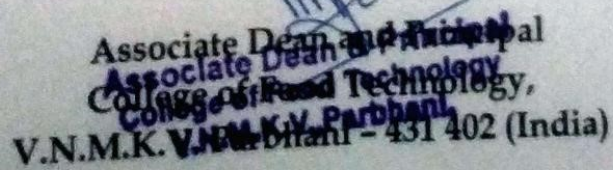 Associate Dean and Principal
College of Food Technology,
V.N.M.K.V. Parbhani – 431 402 (India)
Associate Dean & Principal
College of Food Technology
V.N.M.K.V. Parbhani